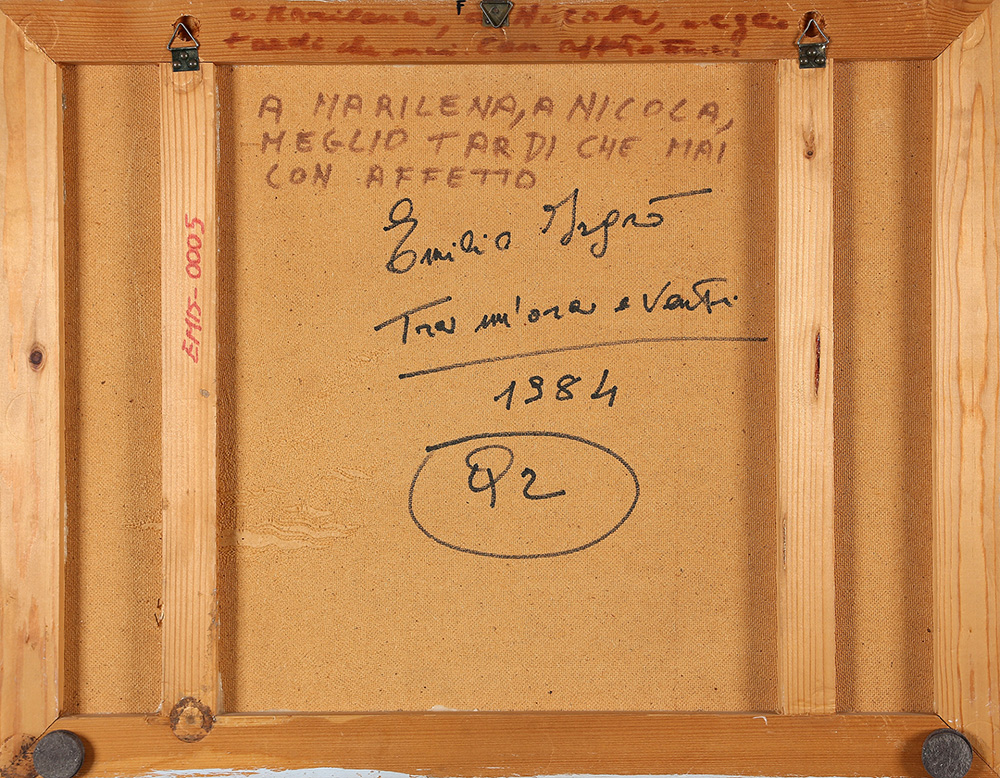 F
a Marilena, a Nicola, meglio
tardi che mai con affetto
A MARILENA, A NICOLA,
MEGLIO TARDI CHE MAI
CON AFFETTO
Emilio Isgrò
Tra un'ora e venti
1984
Q2
EMIS-0005